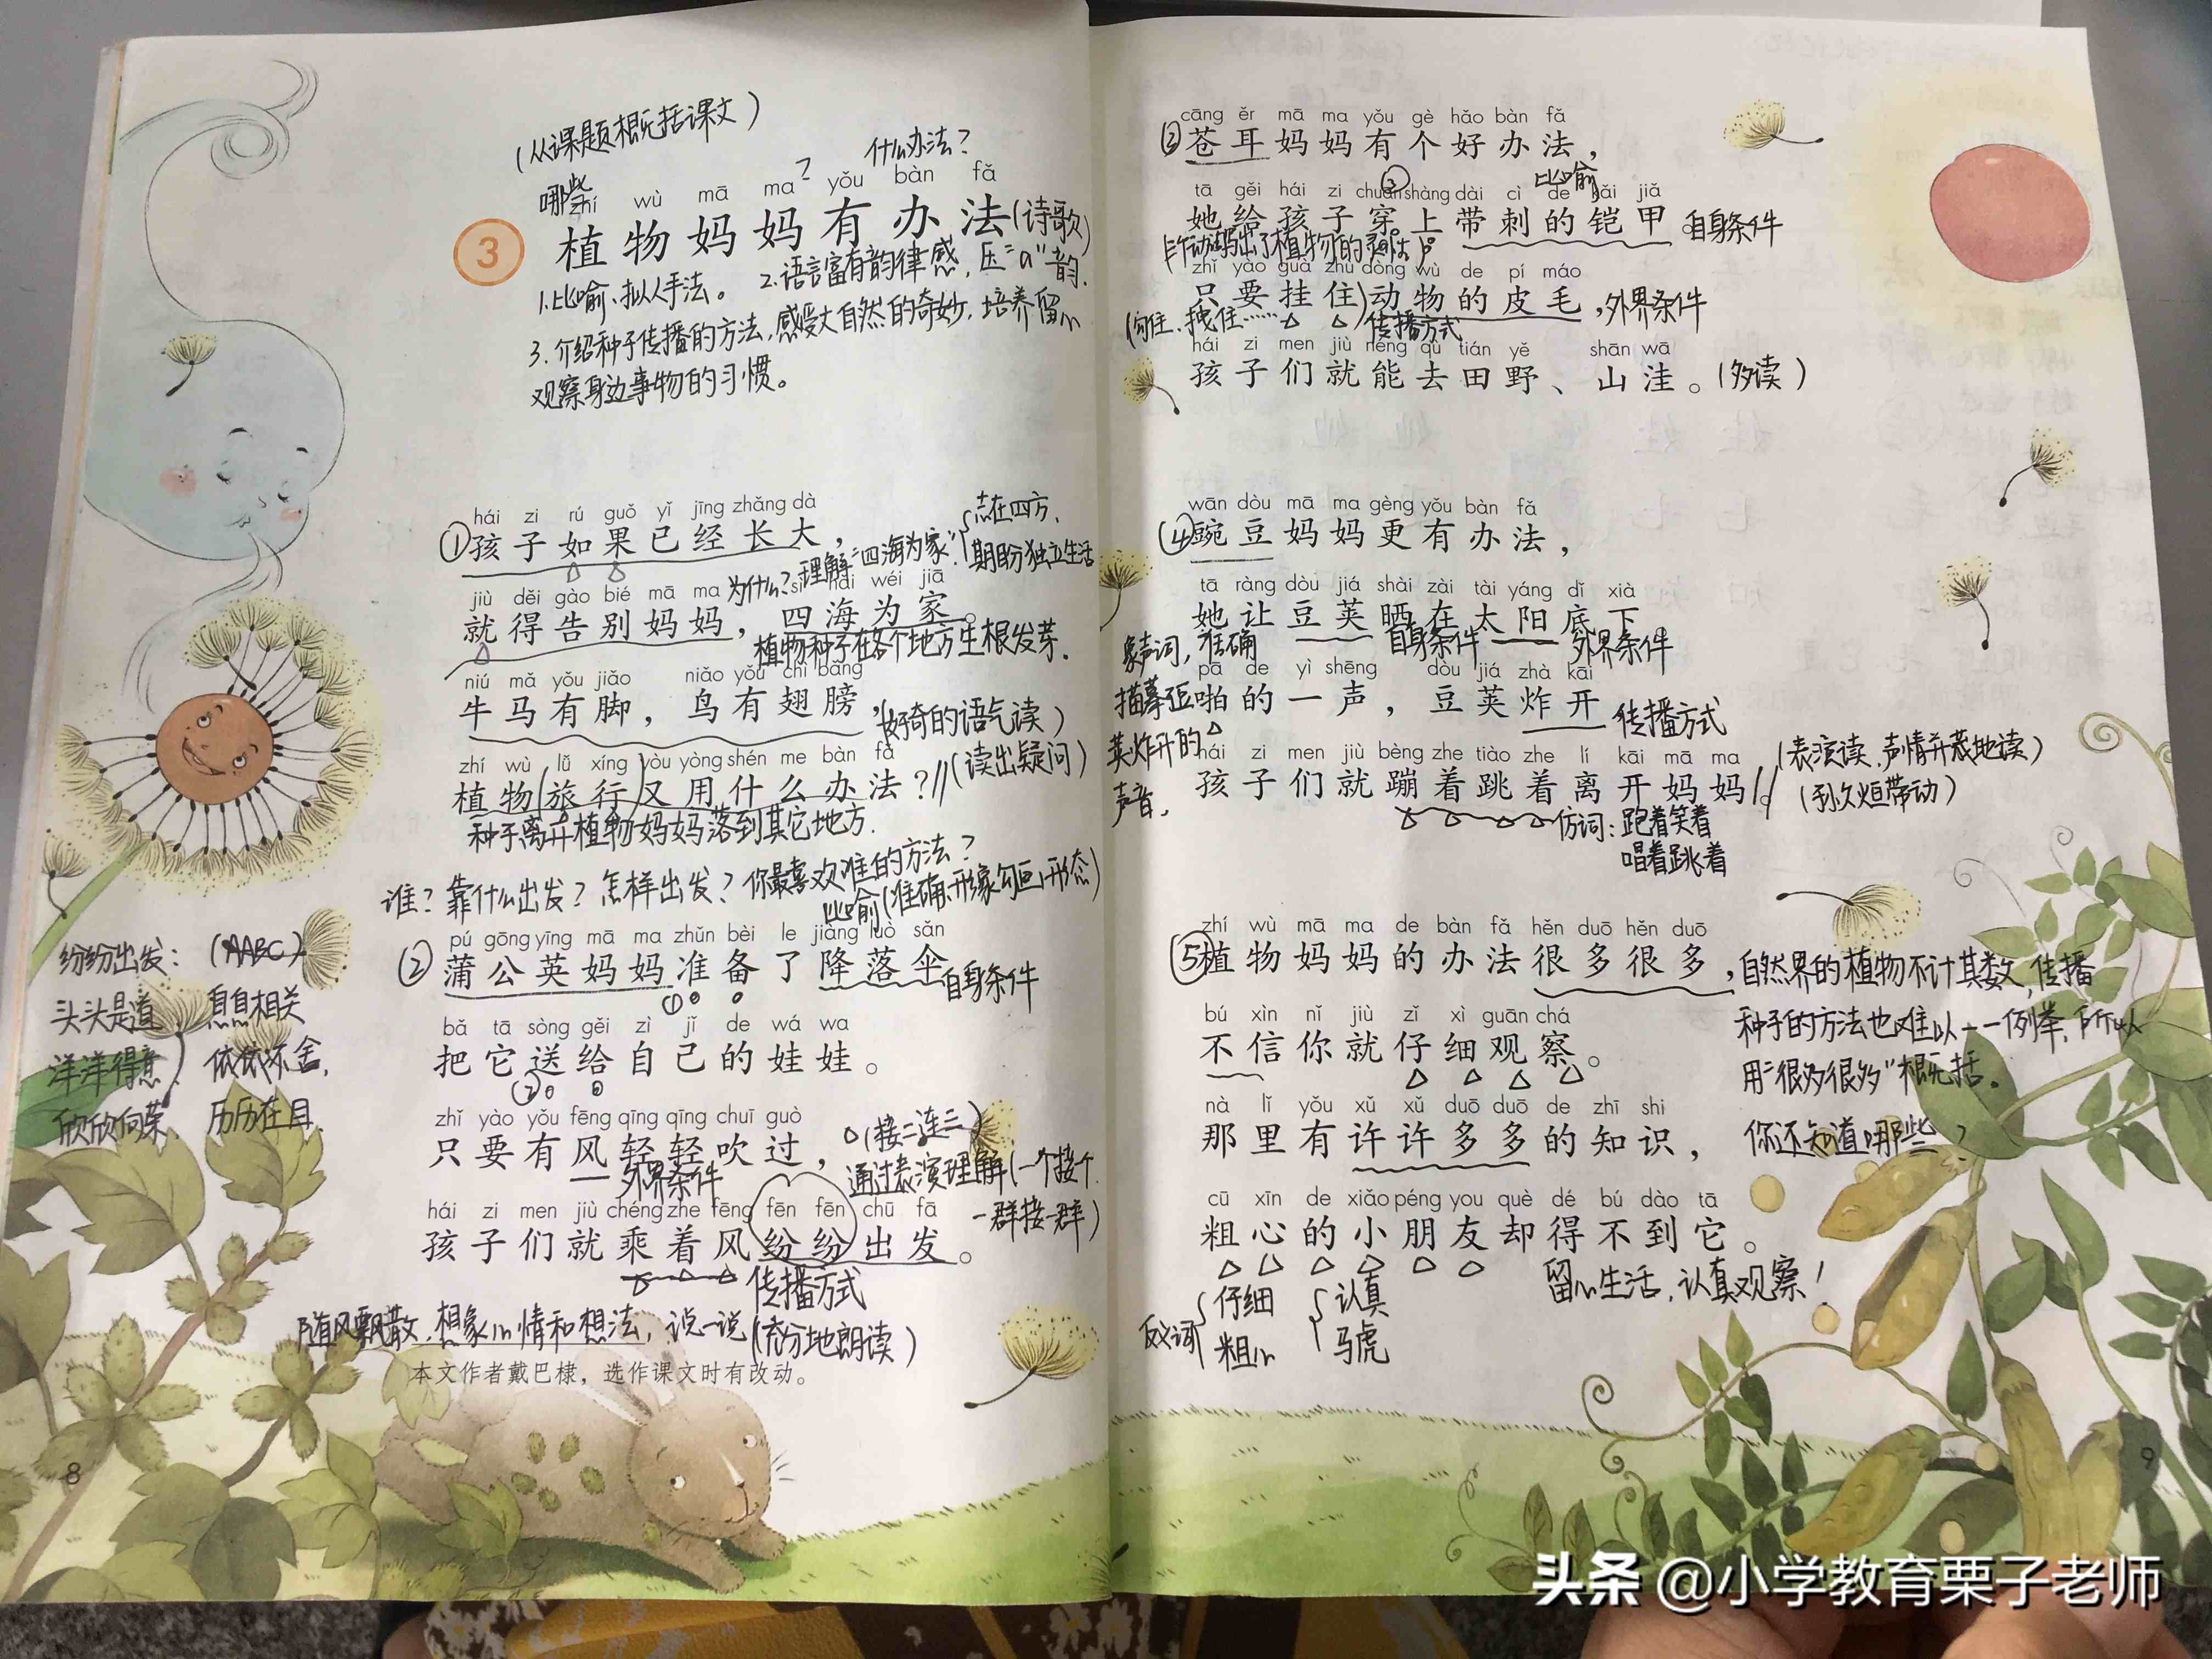 (从课题概括课文)
哪些
?
什么办法?
zhí wù mā ma yǒu bàn fǎ
3 植物妈妈有办法(诗歌)
1.比喻、拟人手法。 2.语言富有韵律感,压"a"韵.
3.介绍种子传播的方法,感受大自然的奇妙,培养留心
观察身边事物的习惯。
hái zi rú guǒ yǐ jīng zhǎng dà
①孩子如果已经长大,
为什么?理解"四海为家".
志在四方、
期盼独立生活
jiù děi gào bié mā ma sì hǎi wéi jiā
就得告别妈妈,四海为家。
植物种子在各个地方生根发芽.
niú mǎ yǒu jiǎo niǎo yǒu chì bǎng
牛马有脚,鸟有翅膀,(好奇的语气读)
zhí wù lǚ xíng yòu yòng shén me bàn fǎ
植物(旅行)又用什么办法?//(读出疑问)
种子离开植物妈妈落到其它地方.
谁?靠什么出发?怎样出发?你最喜欢谁的方法?
比喻(准确、形象勾画形态)
pú gōng yīng mā ma zhǔn bèi le jiàng luò sǎn
②蒲公英妈妈准备了降落伞自身条件
①
bǎ tā sòng gěi zì jǐ de wá wa
把它送给自己的娃娃。
②
zhǐ yào yǒu fēng qīng qīng chuī guò
只要有风轻轻吹过,
外界条件
(接二连三)
通过表演理解(一个接个.
一群接一群)
hái zi men jiù chéng zhe fēng fēn fēn chū fā
孩子们就乘着风纷纷出发。
传播方式
随风飘散.想象心情和想法,说一说(充分地朗读)
本文作者戴巴棣,选作课文时有改动。
纷纷出发: (AABC)
头头是道、 息息相关
洋洋得意、 依依不舍,
欣欣向荣、 历历在目.
8
cāng ěr mā ma yǒu gè hǎo bàn fǎ
③苍耳妈妈有个好办法,
②
比喻
tā gěi hái zi chuān shàng dài cì de kǎi jiǎ
她给孩子穿上带刺的铠甲。自身条件
zhǐ yào guà zhù dòng wù de pí máo
只要挂住)动物的皮毛,外界条件
(勾住、拽住…… 传播方式
hái zi men jiù néng qù tián yě shān wā
孩子们就能去田野、山洼。(多读)
wān dòu mā ma gèng yǒu bàn fǎ
④豌豆妈妈更有办法,
tā ràng dòu jiá shài zài tài yáng dǐ xià
她让豆荚晒在太阳底下。
自身条件 外界条件
象声词,准确
描摹豆
荚炸开的
声音.
pā de yì shēng dòu jiá zhà kāi
啪的一声,豆荚炸开 传播方式
hái zi men jiù bèng zhe tiào zhe lí kāi mā ma
孩子们就蹦着跳着离开妈妈。//
(表演读、声情并茂地读)
仿词:跑着笑着
唱着跳着
zhí wù mā ma de bàn fǎ hěn duō hěn duō
⑤植物妈妈的办法很多很多,
自然界的植物不计其数,传播
种子的方法也难以一一例举,所以
用"很多很多"概括.
bú xìn nǐ jiù zǐ xì guān chá
不信你就仔细观察。
nà lǐ yǒu xǔ xǔ duō duō de zhī shi
那里有许许多多的知识,
你还知道哪些?
cū xīn de xiǎo péng you què dé bú dào tā
粗心的小朋友却得不到它。
反义词{仔细 {认真
粗心 马虎
留心生活,认真观察!
9
头条 @小学教育栗子老师